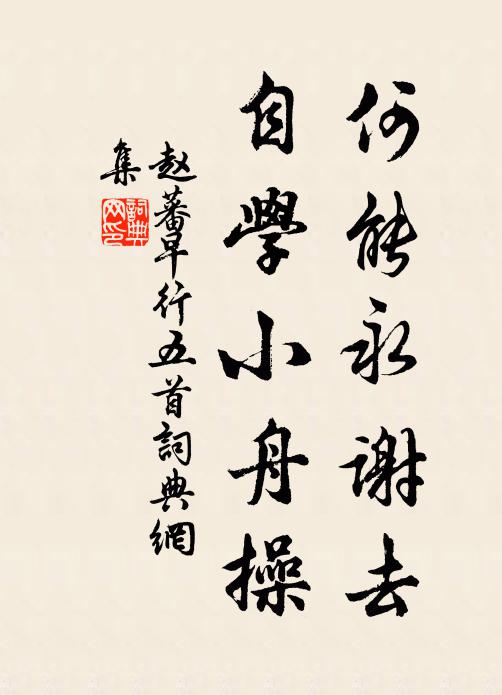 何能永谢去
自學小舟操
赵蕃早行五首詞典網
集
詞典网印